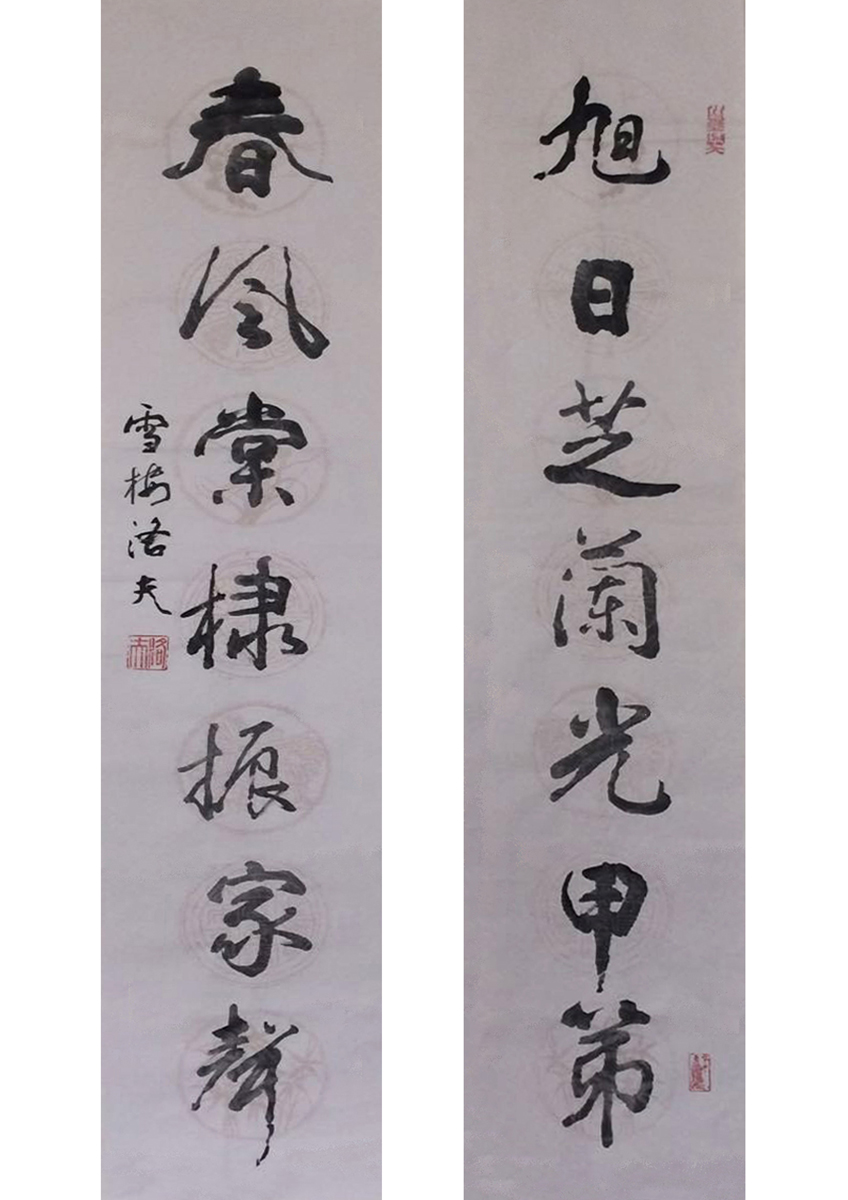 旭日芝蘭光甲第
春風棠棣振家聲
雪梅洛夫
洛夫